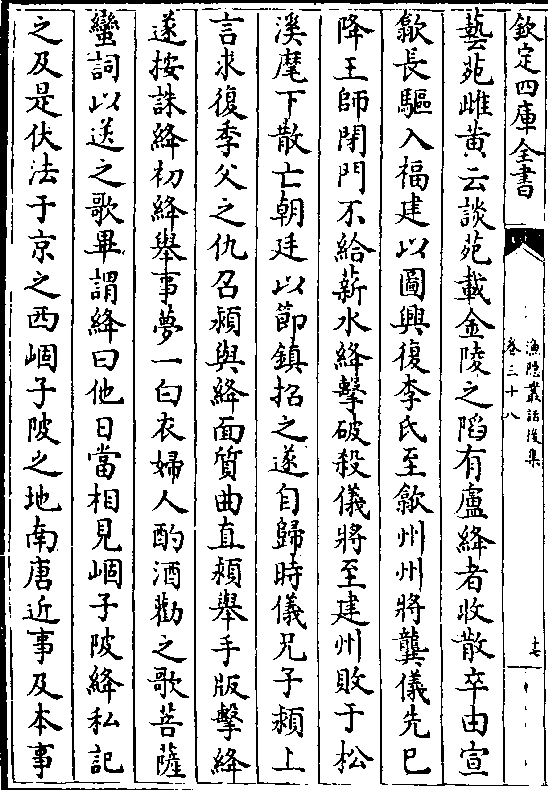 欽定四庫全書
漁隱叢話後集
卷三十八
十七
藝苑雌黄云談苑載金陵之陷有盧絳者收散卒由宣
歙長驅入福建以圖興復李氏至歙州州將龔儀先已
降王師閉門不給薪水絳擊破殺儀將至建州敗于松
溪麾下散亡朝廷以節鎮招之遂自歸時儀兄子頴上
言求復季父之仇召頴與絳面質曲直頴舉手版擊絳
遂按誅絳初絳舉事夢一白衣婦人酌酒勸之歌菩薩
蠻詞以送之歌畢謂絳曰他日當相見崓子陂絳私記
之及是伏法于京之西崓子陂之地南唐近事及本事